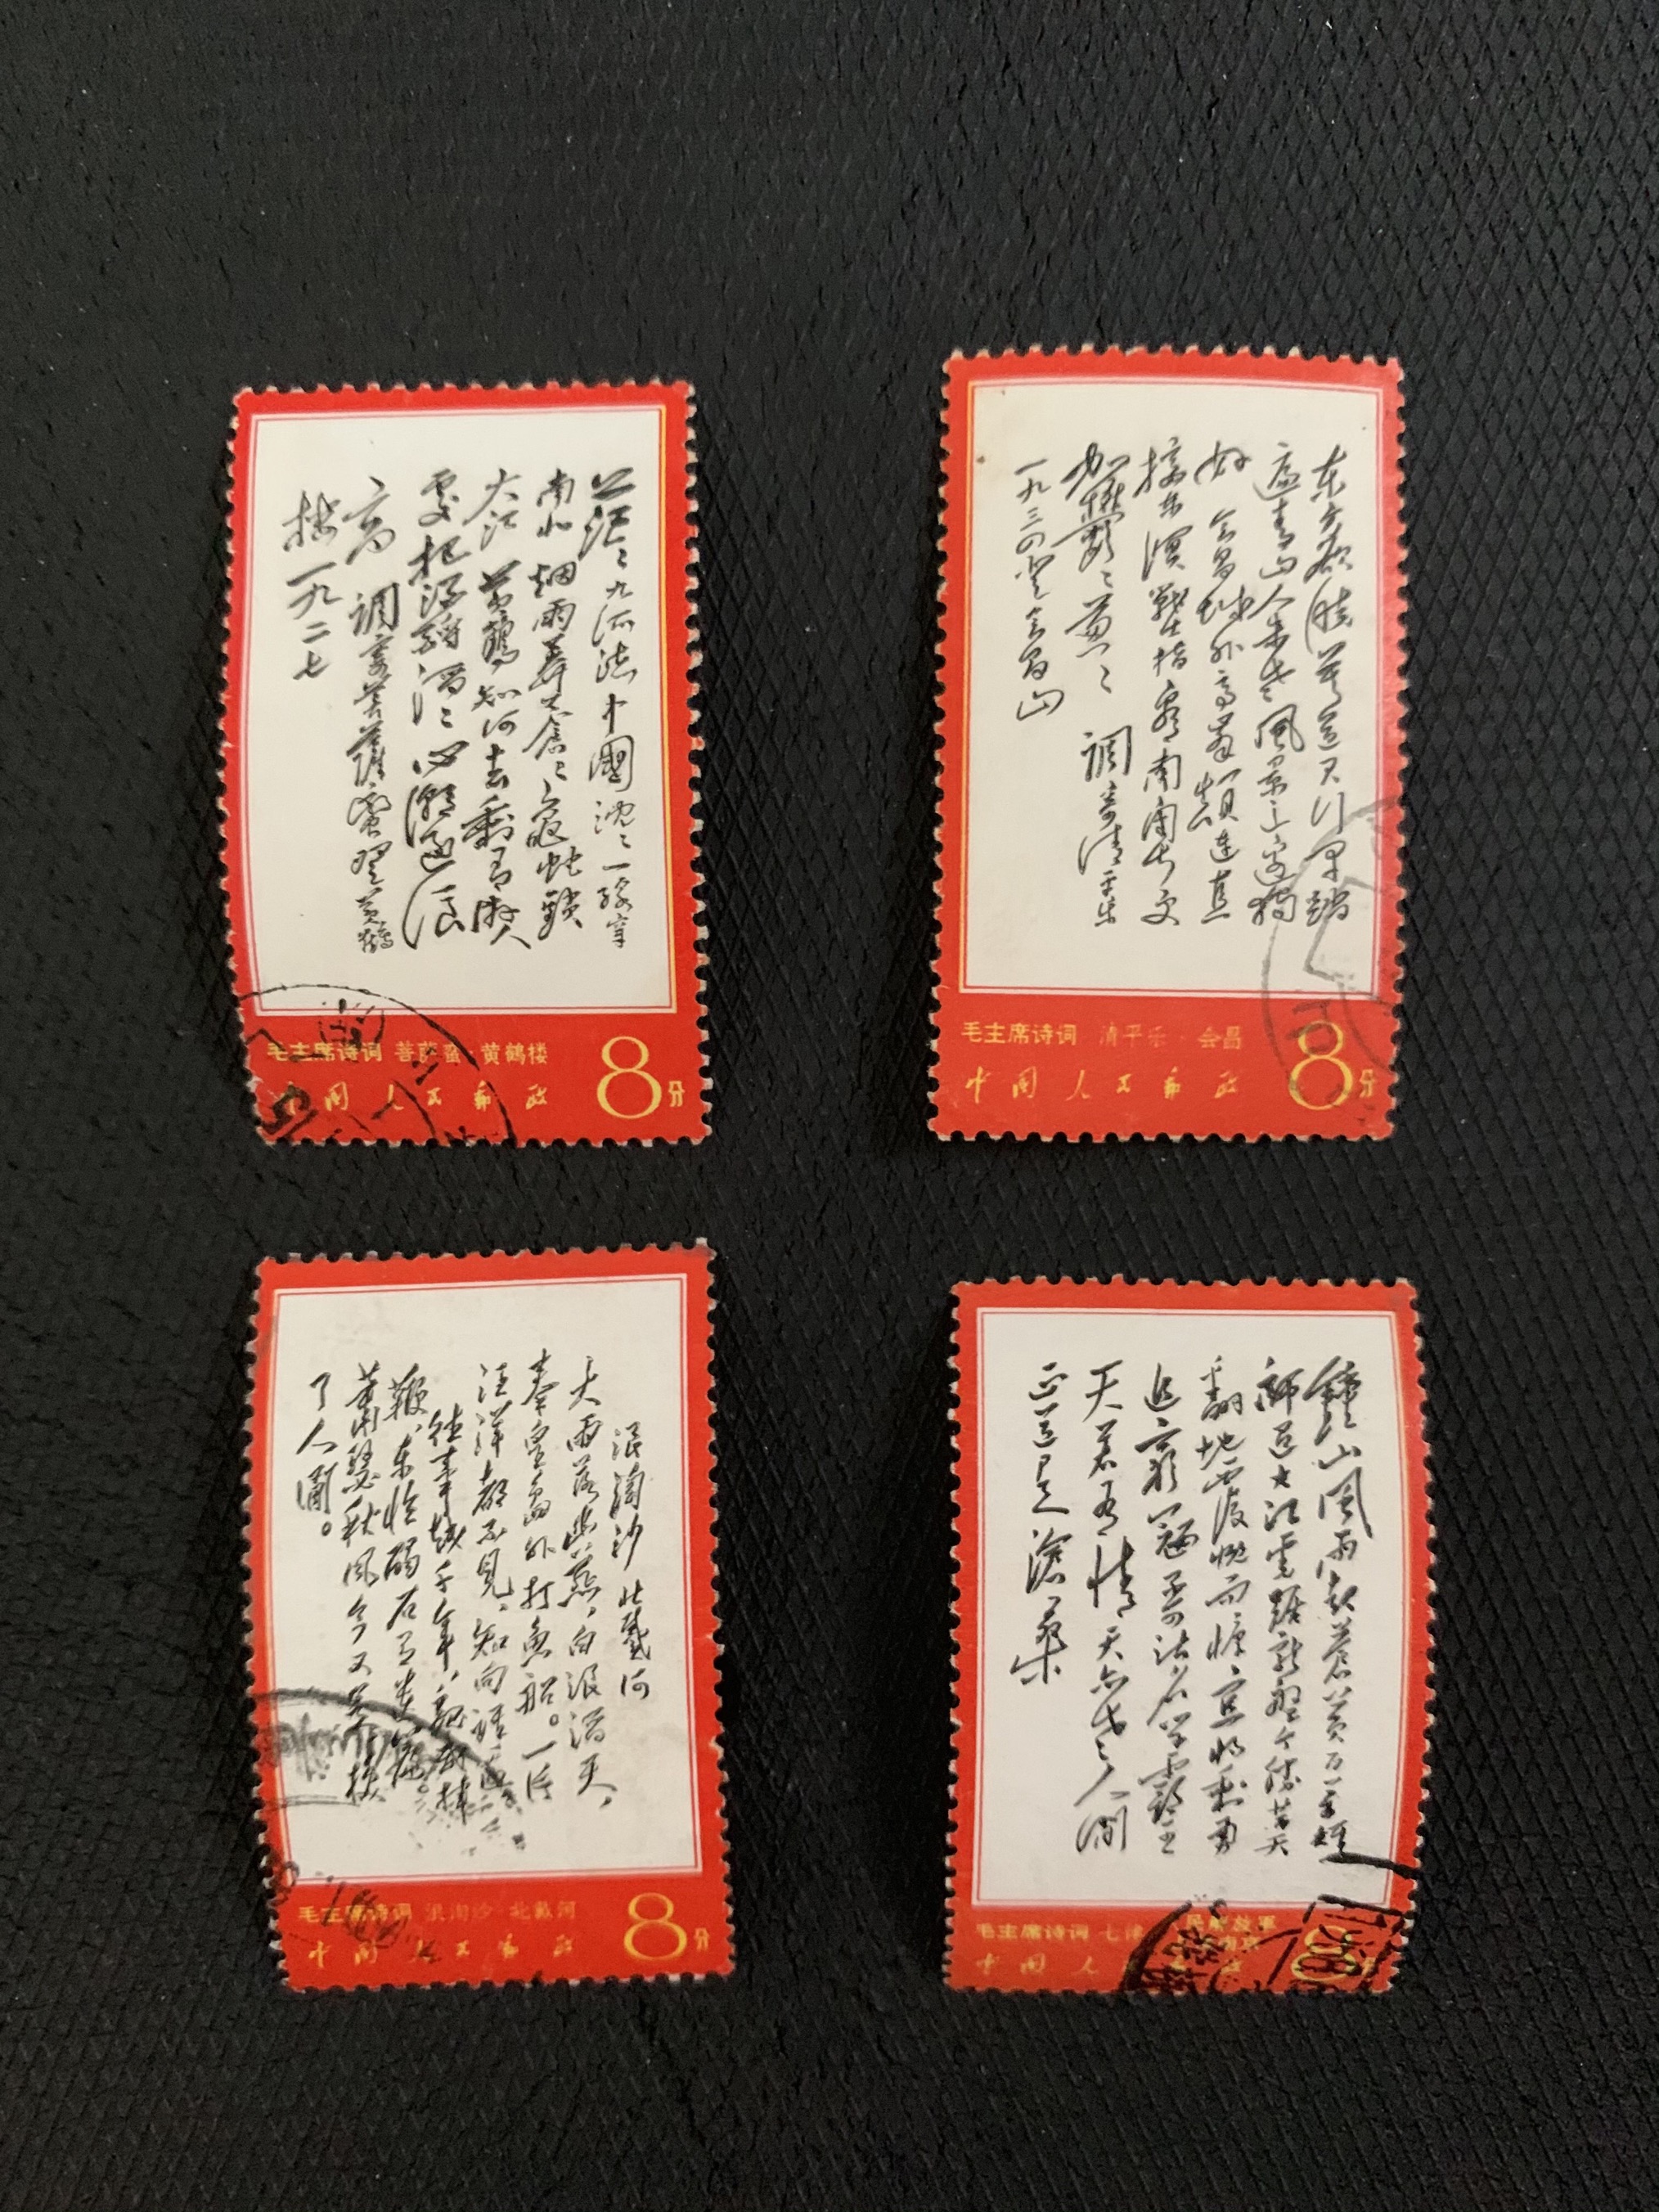 茫〻九派流中國沈〻一線穿
南北烟雨莽蒼〻龜蛇鎖
大江 黄鶴知何去剩有遊人
處把酒酹滔〻心潮逐浪
高 調寄菩薩蠻登黄鶴
樓 一九二七
毛主席诗词 菩萨蛮·黄鹤楼
中国人民邮政 8分
东方欲曉莫道君行早踏
遍青山人未老風景这邊獨
好 会昌城外高峯顛連直
接东溟戰士指看南粤更
加鬱〻葱〻 調寄清平樂
一九三四登会昌山
毛主席诗词 清平乐·会昌
中国人民邮政 8分
浪淘沙 北戴河
大雨落幽燕，白浪滔天，
秦皇島外打魚船。一片
汪洋都不見，知向誰邊
往事越千年，魏武揮
鞭，东临碣石有遺篇。
蕭瑟秋風今又是，換
了人间。
毛主席诗词 浪淘沙·北戴河
中国人民邮政 8分
鐘山風雨起蒼黄百万雄
師过大江虎踞龍盤今勝昔天
翻地覆慨而慷宜將剩勇
追窮寇不可沽名學霸王
天若有情天亦老人间
正道是滄桑
毛主席诗词 七律 民解放军
中国人 邮政 8